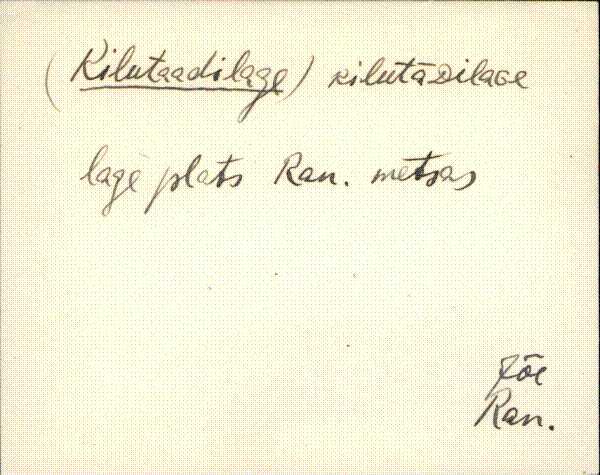 (Kilutaadilage) kilutāDilaGe
lage plats Ran. metsas
Jõe
Ran.